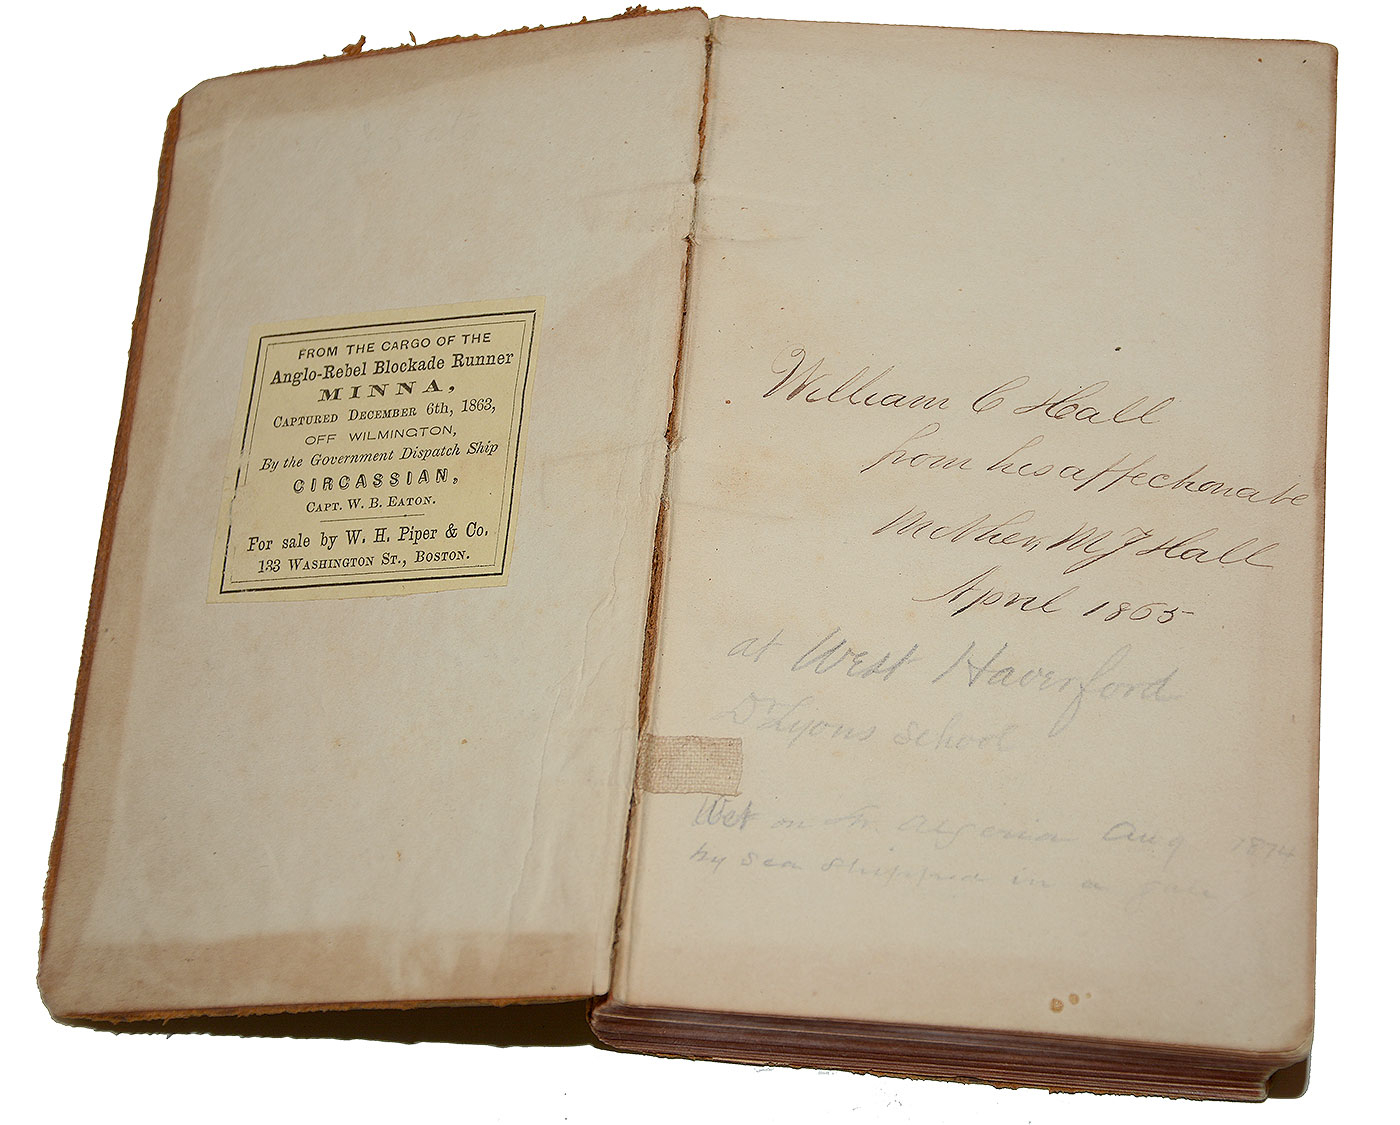 FROM THE CARGO OF THE
Anglo-Rebel Blockade Runner
MINNA,
CAPTURED DECEMBER 6th, 1863,
OFF WILMINGTON,
By the Government Dispatch Ship
CIRCASSIAN,
CAPT. W. B. EATON.
For sale by W. H. Piper & Co.
133 WASHINGTON ST., BOSTON.
William C Hall
from his affectionate
Mother, M J Hall
April 1865
at West Haverford
Dr Lyons School
Wet on Str. Algeria Aug 1874
by sea shipped in a gale